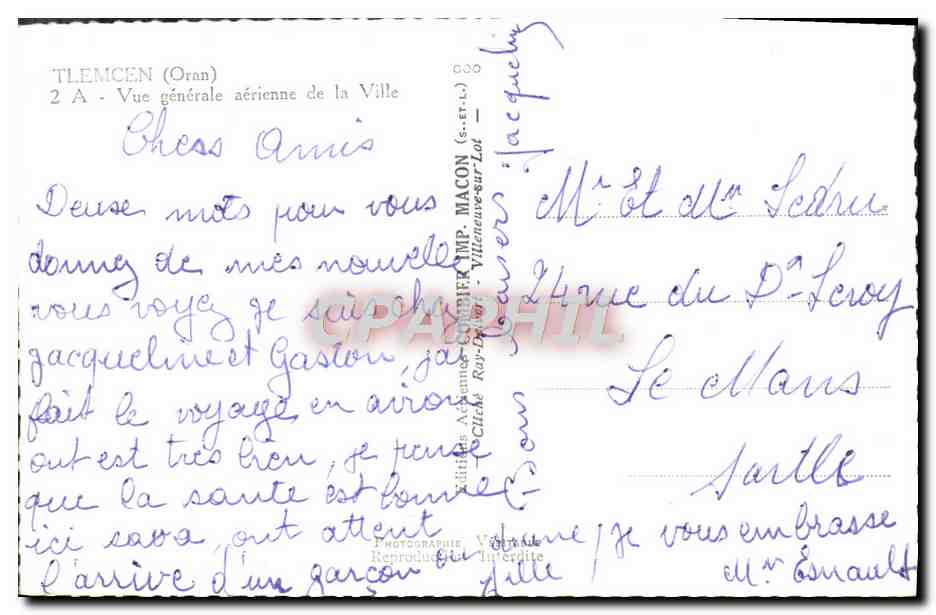 TLEMCEN (Oran)
2 A - Vue générale aérienne de la Ville
Chess Amis
Deuse mots pour vous
donnez de mes nouvelle
vous voyez je suis chez
jacqueline et Gaston, jai
fait le voyage en avion
ont est tres bien, je pense
que la sante est bonne
ici sava, ont attent
l'arrive d'un garçon ou d'une
fille
/ je vous embrasse
Mme Esnault
Bons Baisers Jacqueline
Editions Aériennes COMBIER IMP. MACON (S.-ET-L.)
Cliché Ray-Delvert - Villeneuve-sur-Lot
PHOTOGRAPHIE VÉRITABLE
Reproduction Interdite
CPAPHIL
Mr Et Mme Ledru
24 rue du Dr Leroy
Le Mans
Sarthe